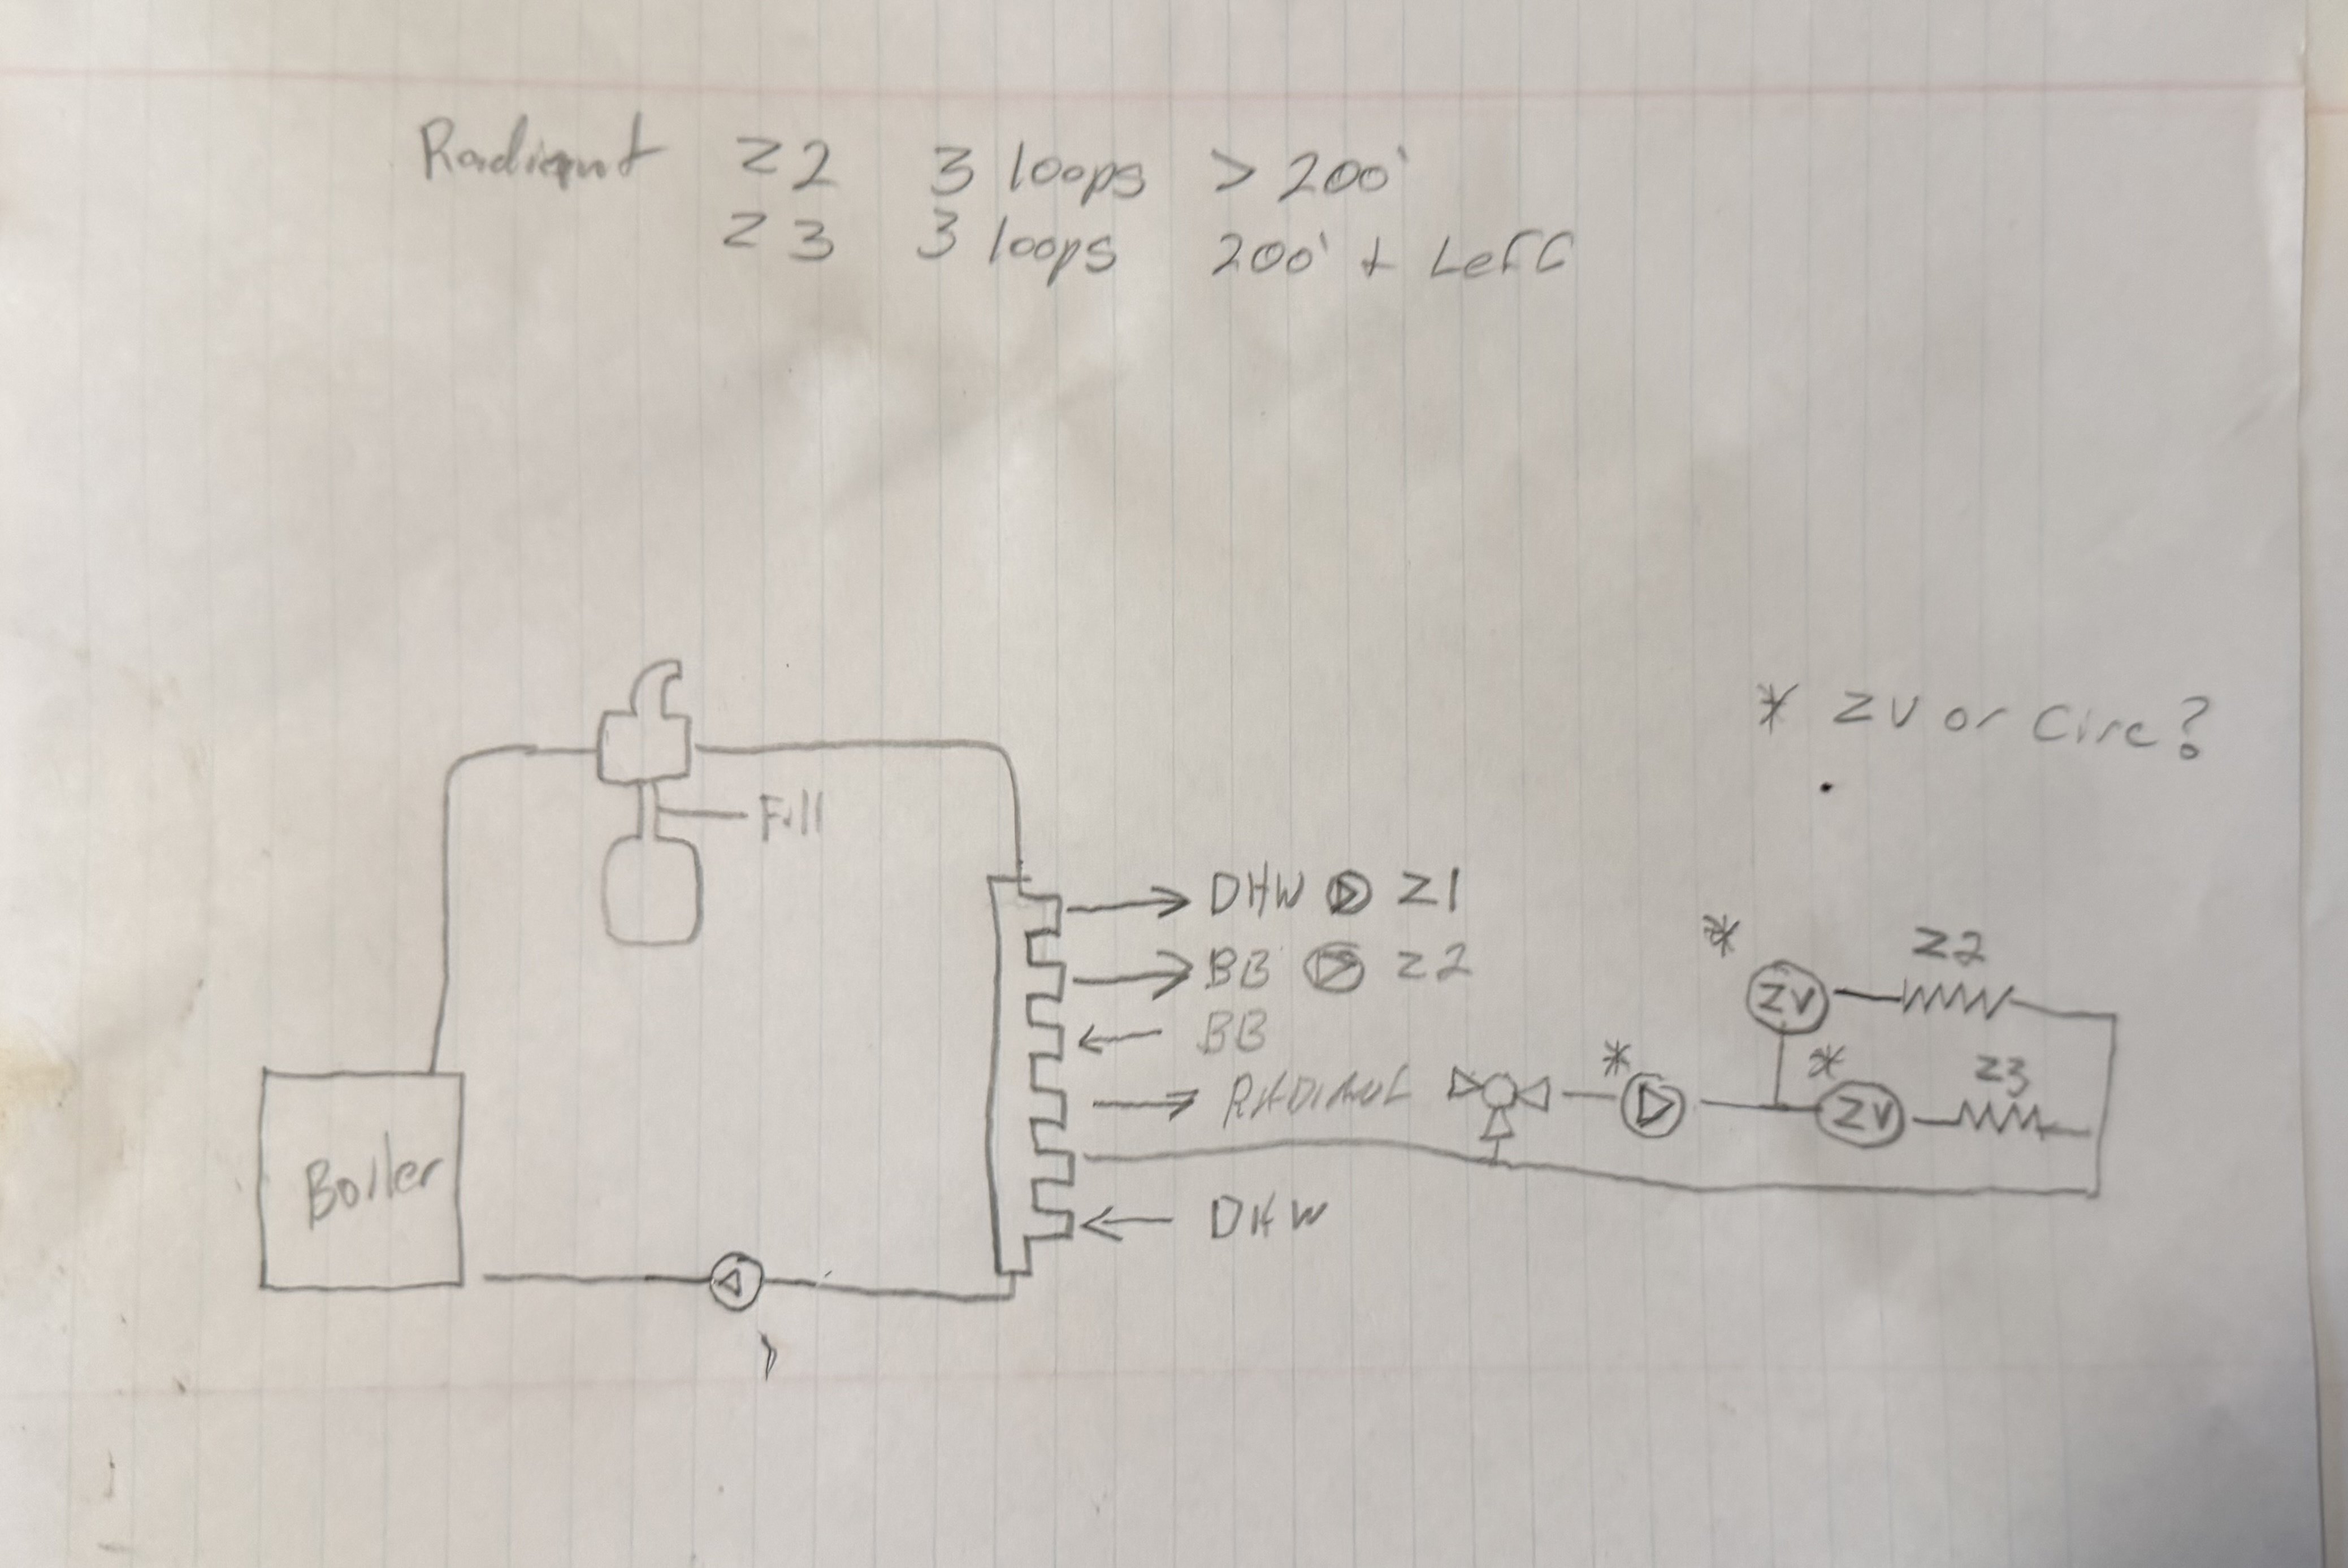 Radiant Z2 3 loops > 200'
Z3 3 loops 200' +
* ZV or Circ?
Fill
DHW Z1
BB Z2
BB
RADIANT
DHW
Boiler
* ZV Z2
* * ZV Z3